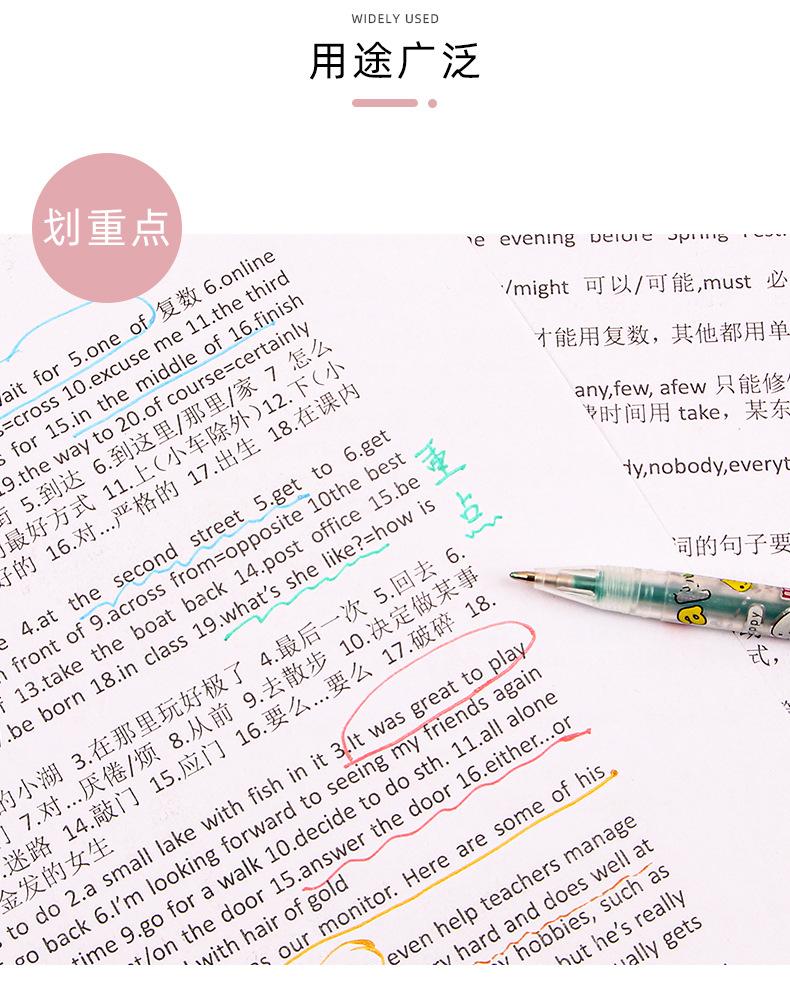 WIDELY USED
用途广泛
划重点
wait for 5.one of 复数 6.online
=cross 10.excuse me 11.the third
s for 15.in the middle of 16.finish
19.the way to 20.of course=certainly
5.到达 6.到这里/那里/家 7 怎么
最好方式 11.上(小车除外)12.下(小
好的 16.对…严格的 17.出生 18.在课内
4.at the second street 5.get to 6.get
front of 9.across from=opposite 10the best
13.take the boat back 14.post office 15.be
be born 18.in class 19.what's she like?=how is
4.最后一次 5.回去 6.
3.在那里玩好极了 9.去散步 10.决定做某事
的小湖 8.从前 16.要么…要么 17.破碎 18.
7.对…厌倦/烦 15.应门
迷路 14.敲门
金发的女生
to do 2.a small lake with fish in it 3.It was great to play
go back 6.I'm looking forward to seeing my friends again
time 9.go for a walk 10.decide to do sth. 11.all alone
/on the door 15.answer the door 16.either…or
with hair of gold
our monitor. Here are some of his
even help teachers manage
hard and does well at
hobbies, such as
but he's really
gets
重
点
evening before Spring
/might 可以/可能,must 必
才能用复数，其他都用单
any,few, afew 只能修
时间用 take，某东
dy,nobody,everyt
词的句子要
式，